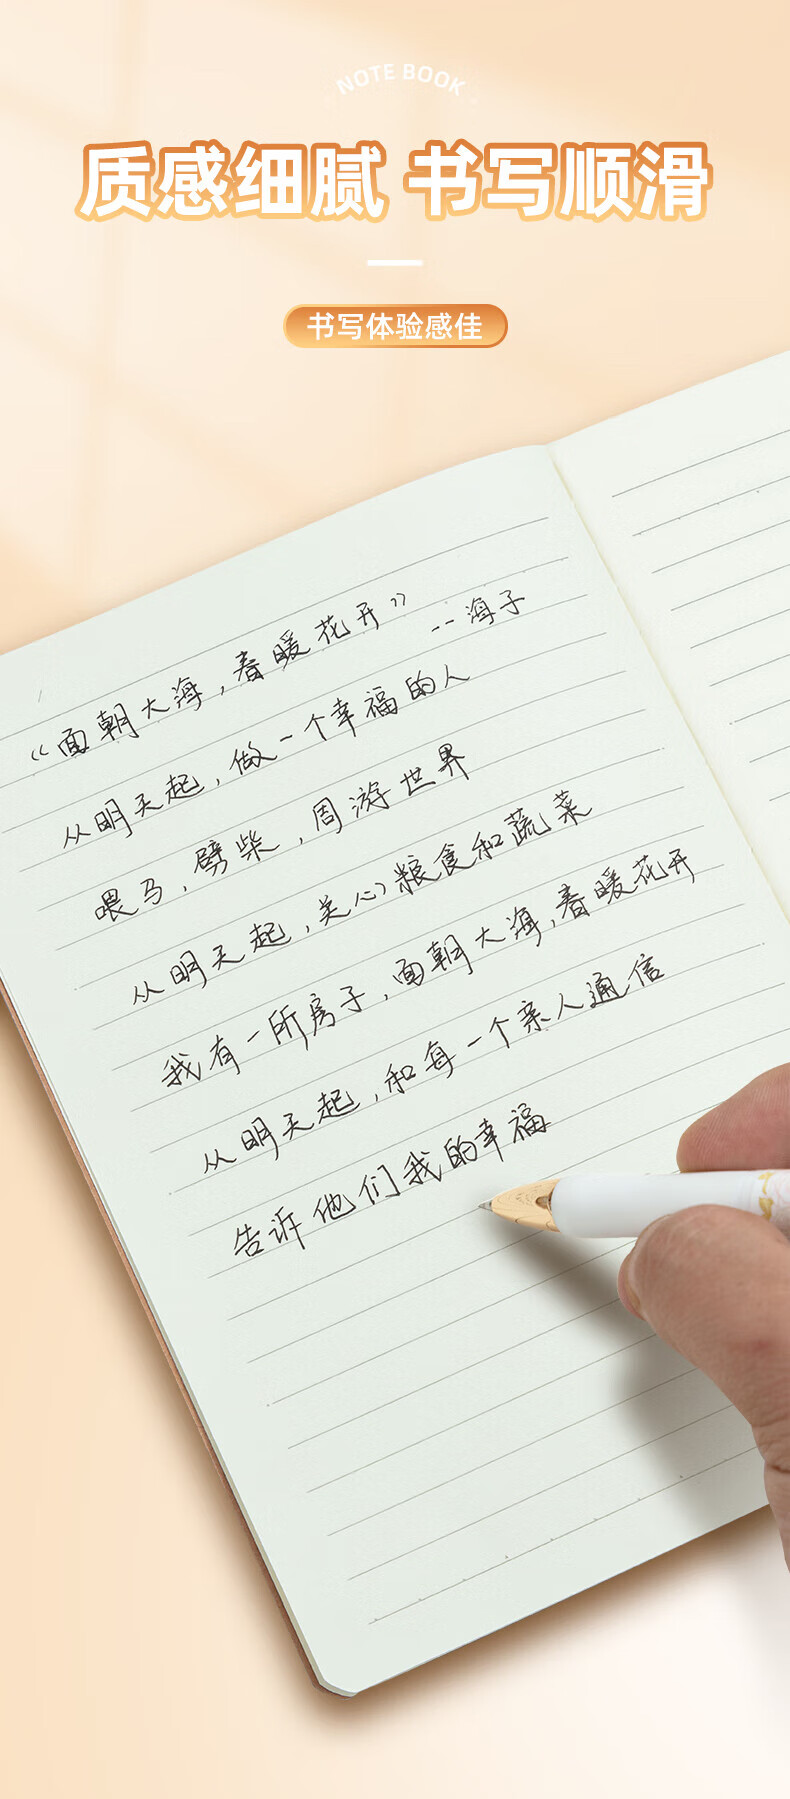 NOTE BOOK
质感细腻 书写顺滑
书写体验感佳
《面朝大海,春暖花开》
--海子
从明天起,做一个幸福的人
喂马,劈柴,周游世界
从明天起,关心粮食和蔬菜
我有一所房子,面朝大海,春暖花开
从明天起,和每一个亲人通信
告诉他们我的幸福